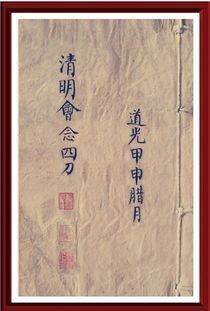 道光甲申腊月
清明會念四刀